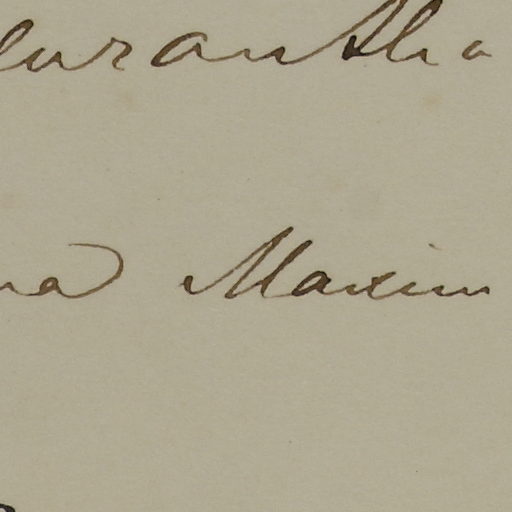 eurantha
na Maxim